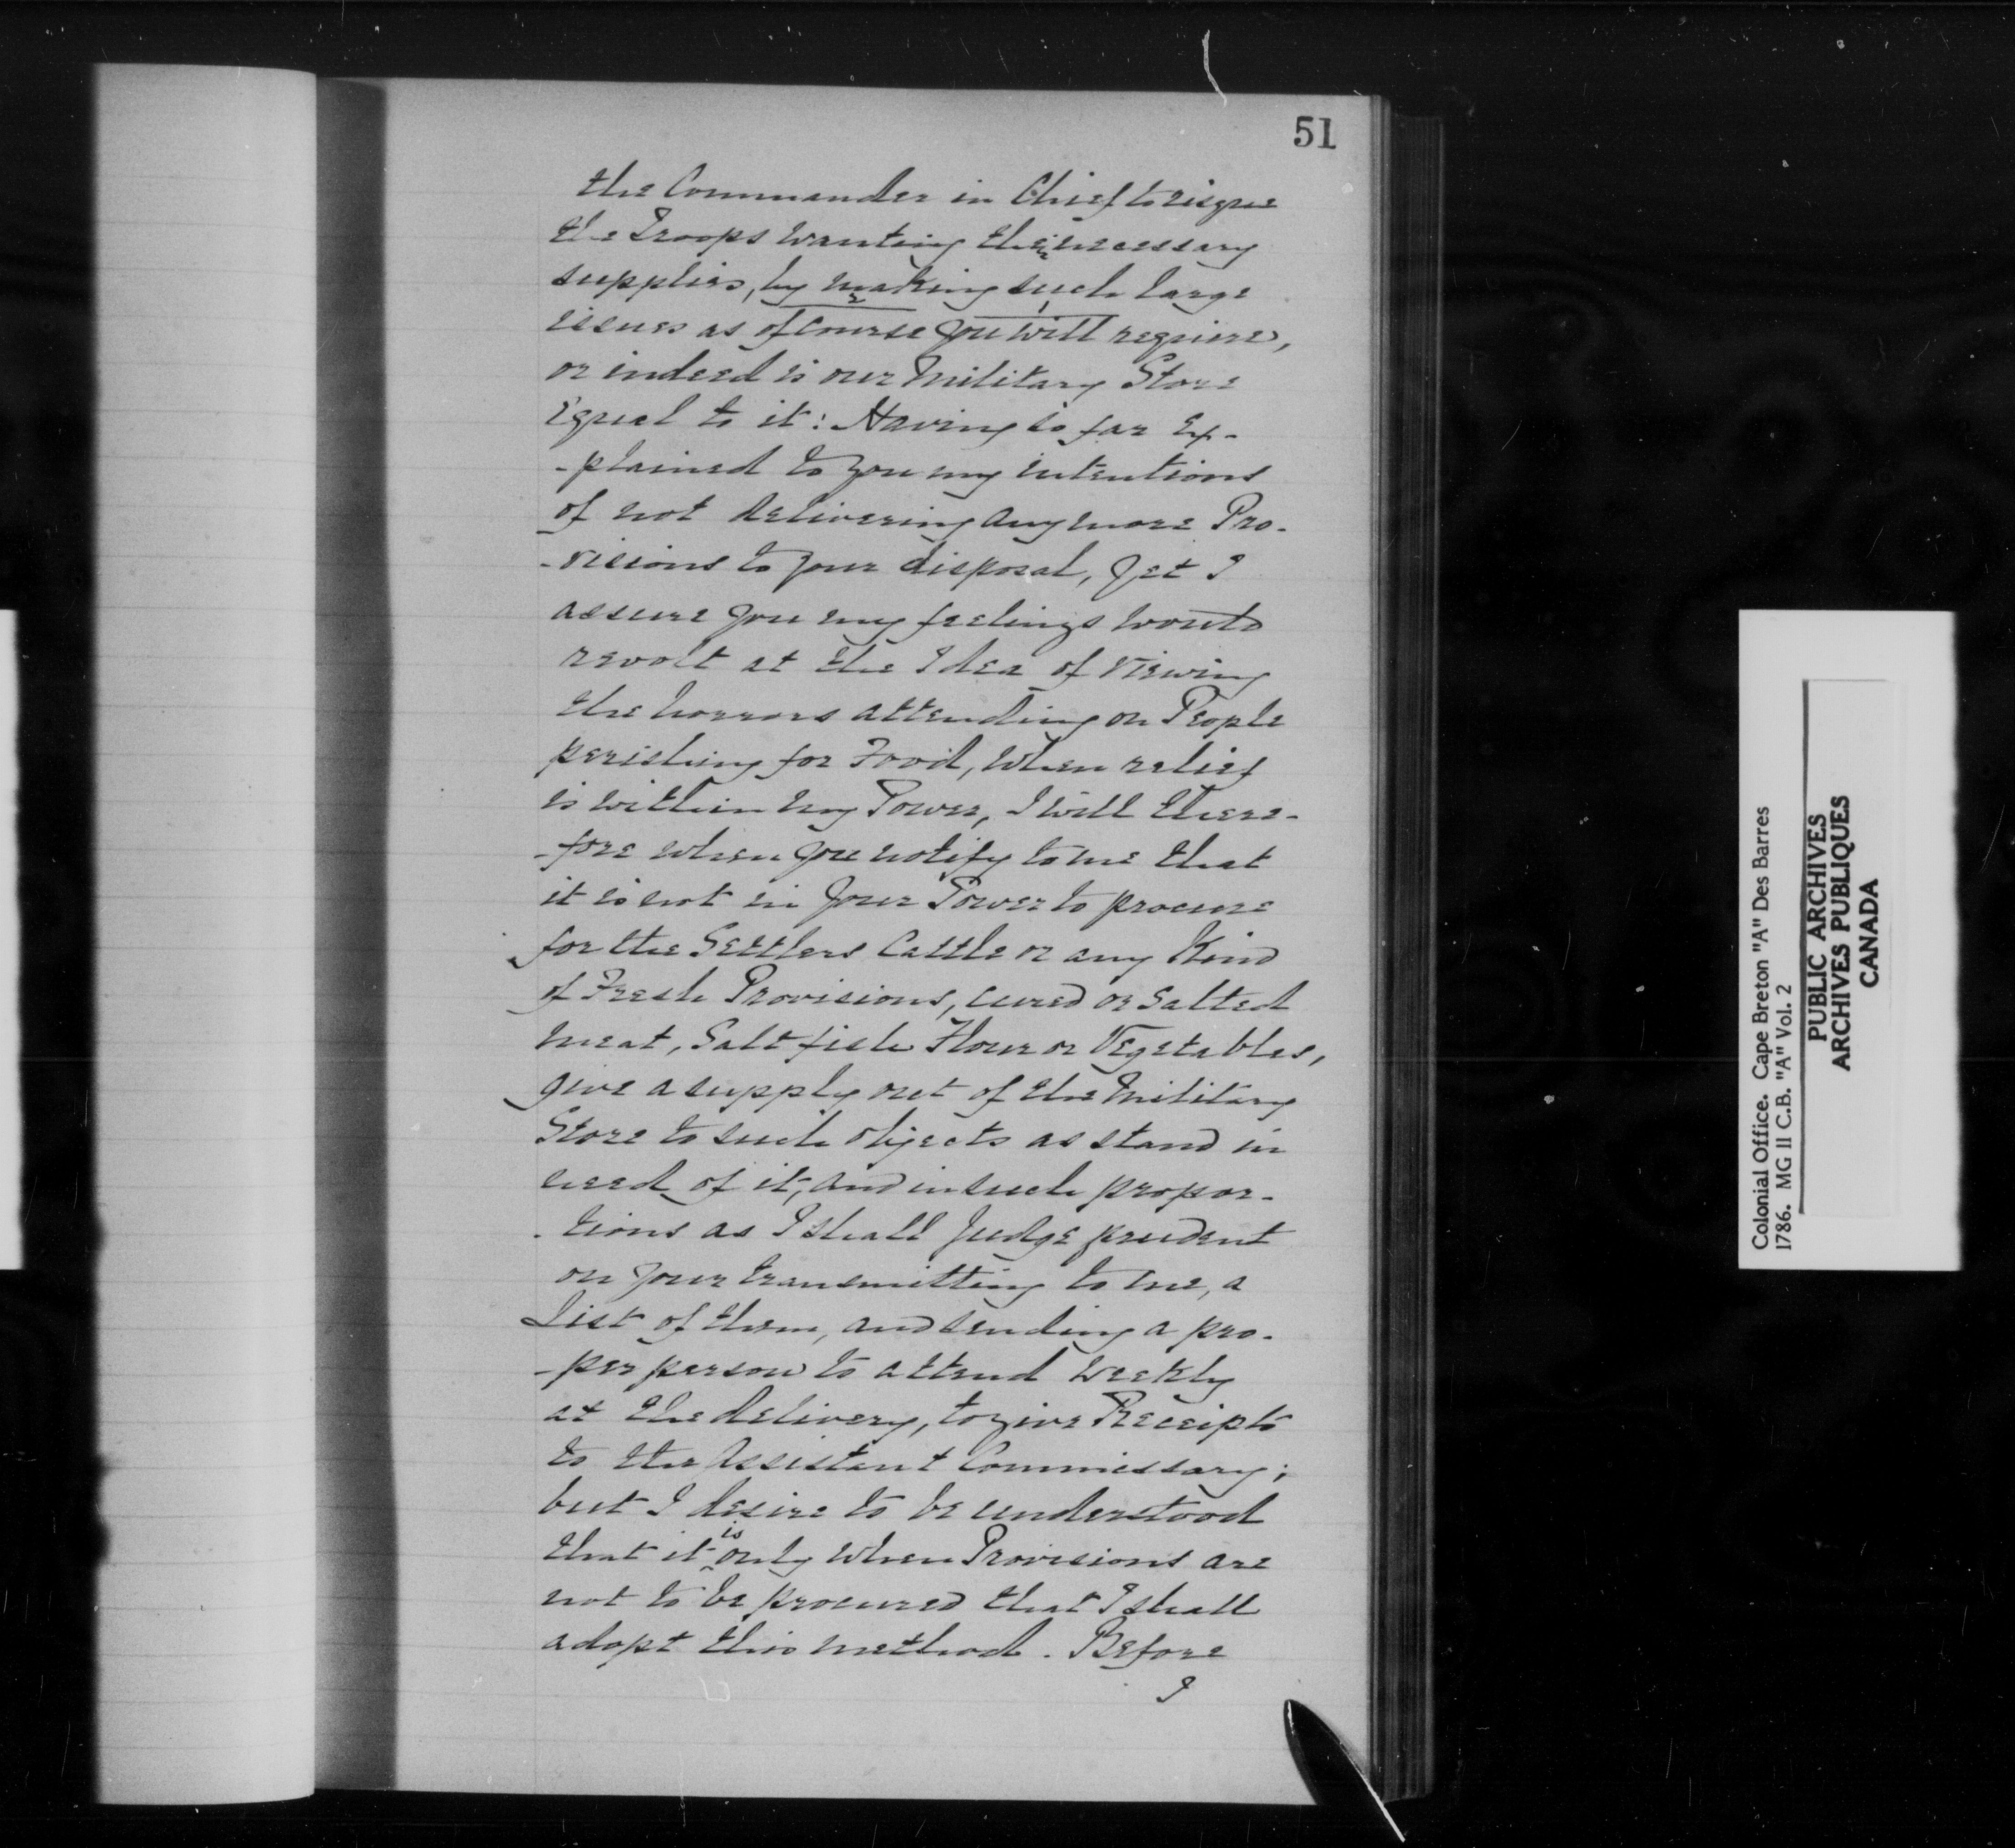 51
the Commander in Chief to risque
the Troops wanting their necessary
supplies, by making such large
issues as of course you will require,
or indeed is our Military Store
Equal to it: Having so far Ex-
-plained to you my intentions
of not delivering any more Pro-
-visions to your disposal, Yet I
assure you my feelings would
revolt at the Idea of Viewing
the horrors attending on People
perishing for Food, when relief
is within my Power, I will there-
-fore when you notify to me that
it is not in your Power to procure
for the Settlers Cattle or any Kind
of Fresh Provisions, cured or salted
meat, Salt fish Flour or Vegetables,
give a supply out of the Military
Store to such objects as stand in
need of it, and in such propor-
-tions as I shall Judge prudent
on your transmitting to me, a
List of them, and sending a pro-
-per person to attend Weekly
at the delivery, to give Receipts
to the Assistant Commissary;
but I desire to be understood
that it is only when Provisions are
not to be procured that I shall
adopt this method. Before
I
Colonial Office. Cape Breton "A" Des Barres
1786. MG II C.B. "A" Vol. 2
PUBLIC ARCHIVES
ARCHIVES PUBLIQUES
CANADA